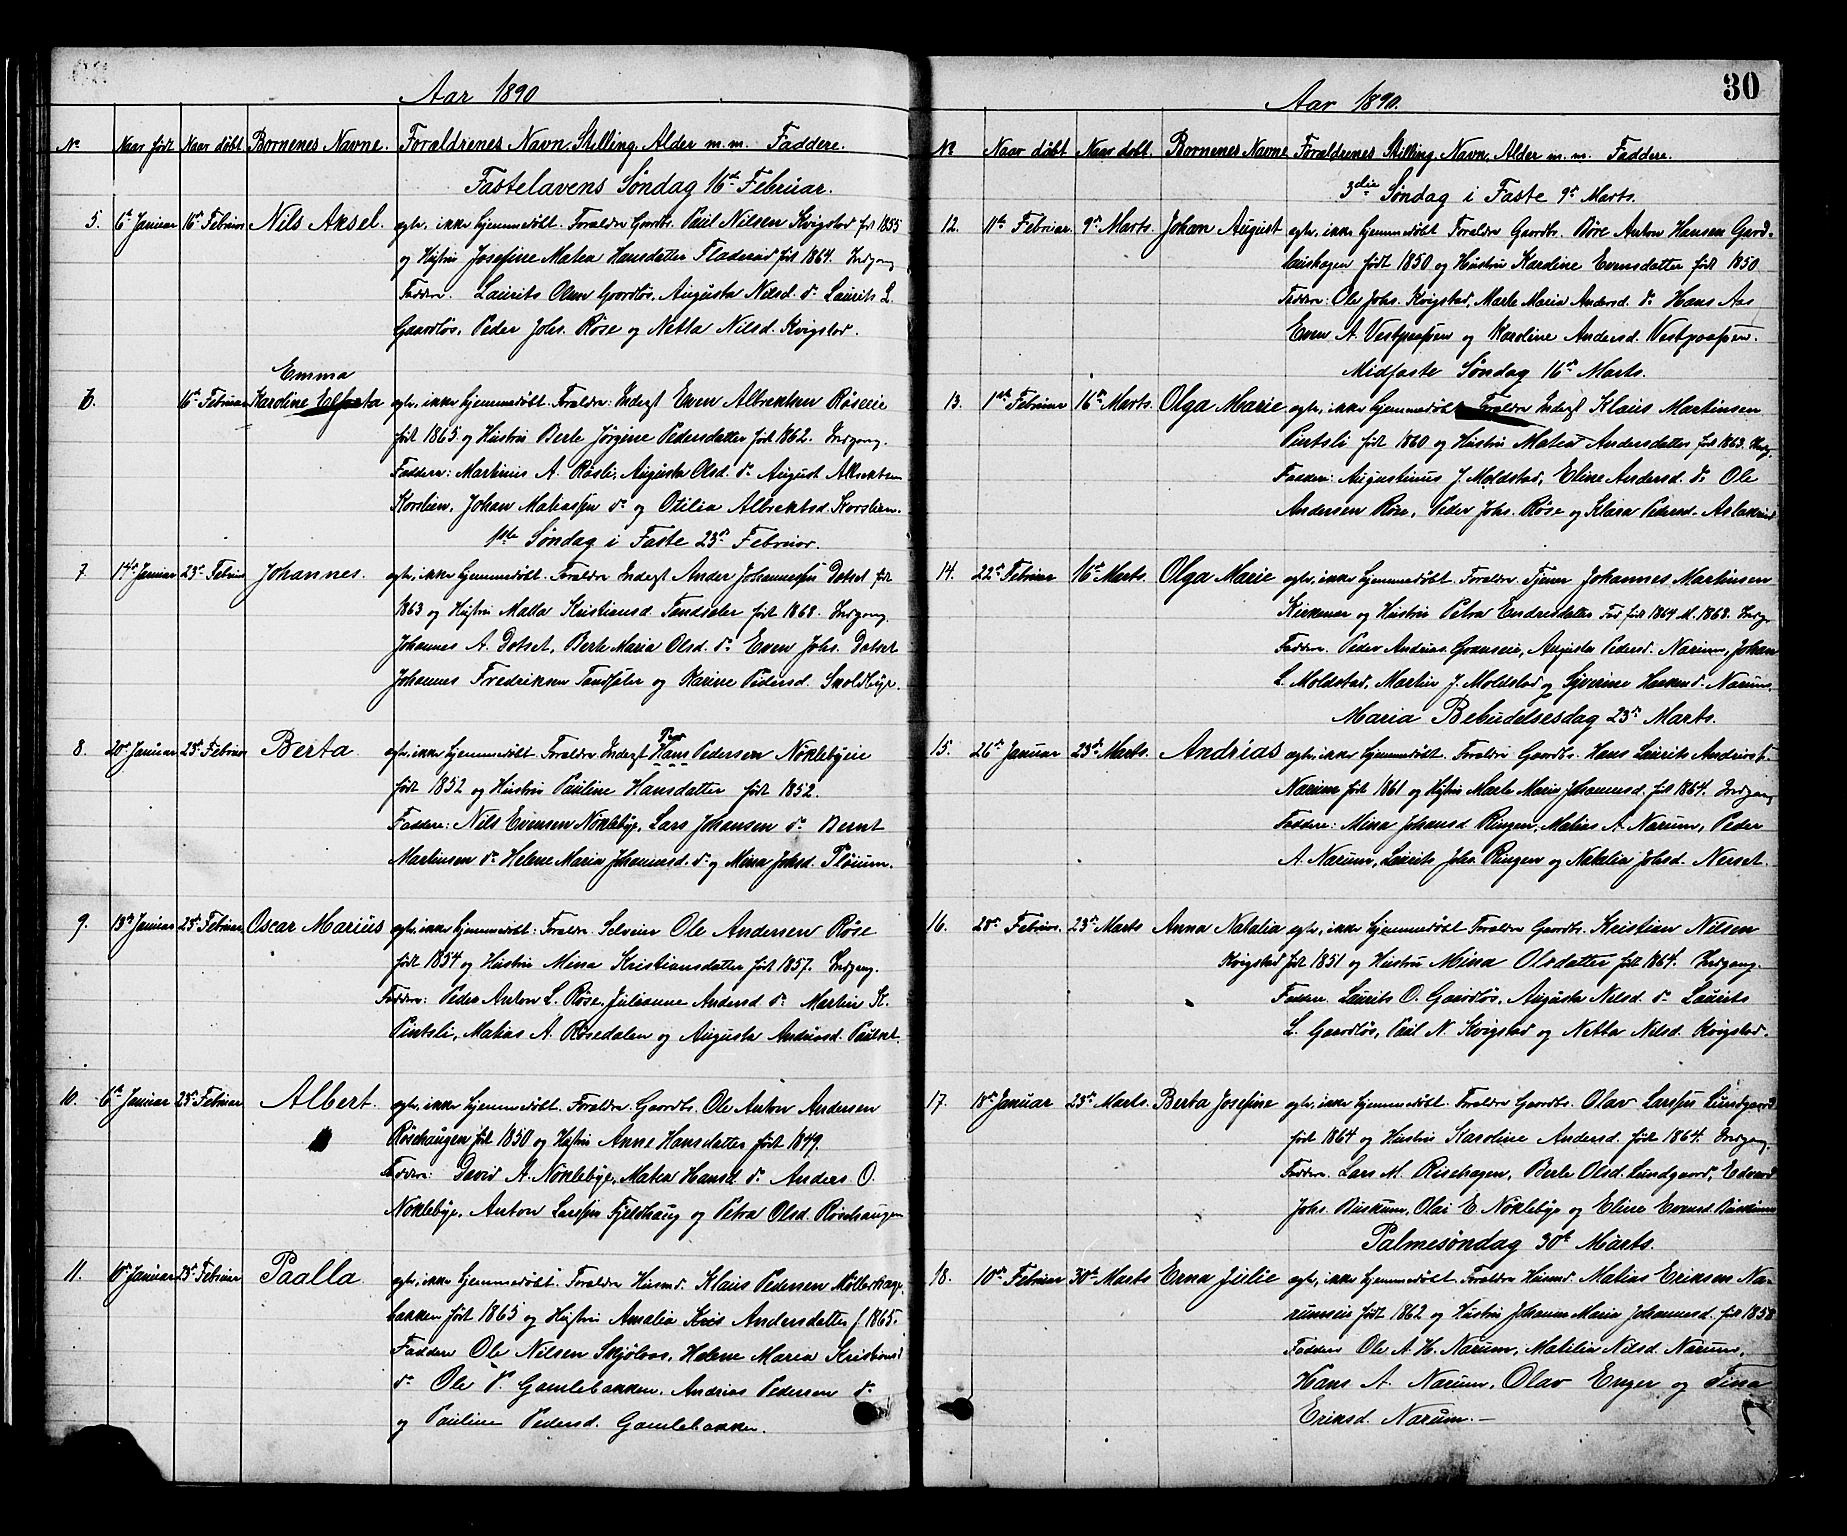 Aar 1890
No Naar født Naar døbt Børnenes Navne. Forældrenes Navn, Stilling, Alder m.m. Faddere.
Fastelavens Søndag 16de Februar.
5. 6te Januar 16de Februar Nils Aksel. egte, ikke hjemmedøbt. Forældre Gaardbr. Paul Nilsen Kvigstad født 1855
og Hustru Josefine Matea Hansdatter Fladerud født 1864. Indgang
Faddere. Laurits Olsen Gaardløs, Augusta Nilsd. do Laurits L.
Gaardløs, Peder Johs. Røse og Netta Nilsd. Kvigstad.
Emma
6. 16de Februar Karoline egte, ikke hjemmedøbt. Forældre: Inderst Even Albrektsen Røseeie
født 1865 og Hustru Berte Jørgine Pedersdatter født 1862. Indgang.
Faddere: Martinus A. Røsli, Augusta Olsd. do August Albrektsen
Korslien, Johan Matiassen do og Otilia Albrektsd. Korslien.
1ste Søndag i Faste 23de Februar.
7. 14de Januar 23de Februar Johannes. egte, ikke hjemmedøbt. Forældre Inderst Anders Johannessen Dotset født
1863 og Hustru Malla Kristiansd. Tandsæter født 1868. Indgang.
Johannes A. Dotset, Berte Maria Olsd. do Even Johs. Dotset
Johannes Fredriksen Tandsæter og Karine Pedersd. Snoldbye.
8. 20de Januar 23de Februar Berta egte, ikke hjemmedøbt. Forældre Inderst Hans Pedersen Nøklebyeie
født 1852 og Hustru Pauline Hansdatter født 1852.
Faddere: Nils Evensen Nøklebye, Lars Johansen do Bernt
Martinsen do Helene Maria Johannesd. do og Mina Johsd. Fløium.
9. 13de Januar 23de Februar Oscar Marius egte, ikke hjemmedøbt: Forældre Selveier Ole Andersen Røse
født 1854 og Hustru Mina Kristiansdatter født 1857. Indgang.
Faddere: Peder Anton L. Røse, Julianne Andersd. do Martin K.
Pintsli, Matias A. Røsedalen og Augusta Andersd. Paulset.
10. 6te Januar 23de Februar Albert. egte, ikke hjemmedøbt. Forældre Gaardbr. Ole Anton Andersen
Røsehaugen født 1850 og Hustru Anne Hansdatter født 1849.
Faddere: David A. Nøklebye, Matea Hansd. do Anders O.
Nøklebye, Anton Larsen Fjeldhaug og Petra Olsd. Røsehaugen
11. 10de Januar 23de Februar Paalla. egte, ikke hjemmedøbt. Forældre Husmd. Klaus Pedersen
bakken født 1865 og Hustru Amalia Andersdatter f 1865.
Faddere Ole Nilsen Skjølaas, Helene Maria Kristiansd
do Ole P. Gamlebakken, Andrias Pedersen do
og Pauline Pedersd. Gamlebakken.
30
Aar 1890.
No Naar døbt Naar døbt. Børnenes Navne Forældrenes Stilling, Navn, Alder m. m. Faddere.
3die Søndag i Faste 9de Marts.
12. 11te Februar. 9de Marts. Johan August egte, ikke hjemmedøbt Forældre Gaardbr. Børe Anton Hansen Gard-
laushagen født 1850 og Hustru Kardine Evensdatter født 1850
Faddere: Ole Johs. Kvigstad, Marte Maria Andersd. do Hans Aas
Even A. Vestpaasen og Karoline Andersd. Vestpaasen.
Midfaste Søndag 16de Marts.
13. 1ste Februar 16de Marts. Olga Marie egte, ikke hjemmedøbt Forældre Inderst Klaus Martinsen
Pintsli født 1860 og Hustru Matea Andersdatter, født 1863. Indg.
Faddere: Augustinus J. Moldstad, Eline Andersd. do Ole
Andersen Røse, Peder Johs. Røse og Klara Pedersd.
14. 22de Februar 16de Marts. Olga Marie egte, ikke hjemmedøbt. Forældre. Tjener Johannes Martinsen
Kirkenær og Hustru Petra Endresdatter Fad. født 1864 M. 1868. Indg.
Faddere. Peder Andrias. Granseie, Augusta Pedersd. Narum, Johan
L. Moldstad, Martin J. Moldstad og Syverine Haakensd. Narum.
Maria Bebudelsesdag 23de Marts.
15. 26de Januar 23de Marts. Andrias egte, ikke hjemmedøbt. Forældre Gaardbr. Hans Laurits Andrias
Narum født 1861 og Hustru Marte Maria Johannesd. født 1864. Indgang
Faddere: Mina Johansd Ringen, Matias A. Narum, Peder
A. Narum, Laurits Johs Ringen og Natalia Johsd. Nerset.
16. 20de Februar. 23de Marts Anna Natalia egte, ikke hjemmedøbt Forældre Gaardbr. Kristian Nilsen
Kvigstad født 1851 og Hustru Mina Olsdatter født 1864. Indgang.
Faddere. Laurits O. Gaardløs, Augusta Nilsd. do Laurits
L. Gaardløs, Paul N. Kvigstad og Netta Nilsd. Kvigstad.
17. 18de Januar 23de Marts. Berta Josefine egte, ikke hjemmedøbt. Forældre Gaardbr. Olav Larsen Lundgaard
født 1864 og Hustru Karoline Andersd. født 1864. Indgang.
Faddere. Lars M. Risehagen, Berte Olsd. Lundgaard, Edvard
Johs. Buskum, Olai E. Nøklebye og Eline Evensd. Buskum
Palmesøndag 30te Marts.
18. 10de Februar 30te Marts Erna Julie egte, ikke hjemmedøbt. Forældre Husmd. Matias Eriksen Na-
rumseie født 1862 og Hustru Johanne Maria Johannesd. født 1858
Faddere Ole A. H. Narum, Matilia Nilsd. Narum,
Hans A. Narum, Olav Enger og Tina
Eriksd. Narum.—